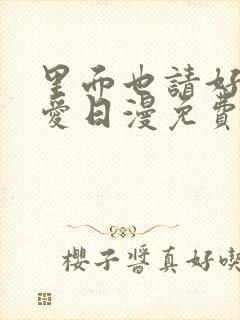 里而也請好
愛日漫免費
櫻子醬真好喫